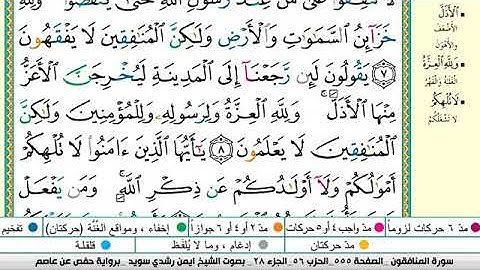 خَزَآئِنُ ٱلسَّمَٰوَٰتِ وَٱلْأَرْضِ وَلَٰكِنَّ ٱلْمُنَٰفِقِينَ لَا يَفْقَهُونَ
٧ يَقُولُونَ لَئِن رَّجَعْنَآ إِلَى ٱلْمَدِينَةِ لَيُخْرِجَنَّ ٱلْأَعَزُّ
مِنْهَا ٱلْأَذَلَّ ۚ وَلِلَّهِ ٱلْعِزَّةُ وَلِرَسُولِهِۦ وَلِلْمُؤْمِنِينَ وَلَٰكِنَّ
ٱلْمُنَٰفِقِينَ لَا يَعْلَمُونَ ٨ يَٰٓأَيُّهَا ٱلَّذِينَ ءَامَنُوا۟ لَا تُلْهِكُمْ
أَمْوَٰلُكُمْ وَلَآ أَوْلَٰدُكُمْ عَن ذِكْرِ ٱللَّهِ ۚ وَمَن يَفْعَلْ
الأَذَلُّ
الأضعف
والأهون
وَلِلَّهِ الْعِزَّةُ
الغلبة والقهر
لَا تُلْهِكُمْ
لا تشغلكم
مدّ ٦ حركات لزوماً
مدّ واجب ٤ أو ٥ حركات
مدّ ٢ أو ٤ أو ٦ جوازاً
إخفاء، ومواقع الغُنَّة (حركتان)
تفخيم
مدّ حركتان
إدغام ، وما لا يُلفَظ
قلقلة
سورة المنافقون - الصفحة ٥٥٥ - الحزب ٥٦ - الجزء ٢٨ - بصوت الشيخ ايمن رشدي سويد - برواية حفص عن عاصم